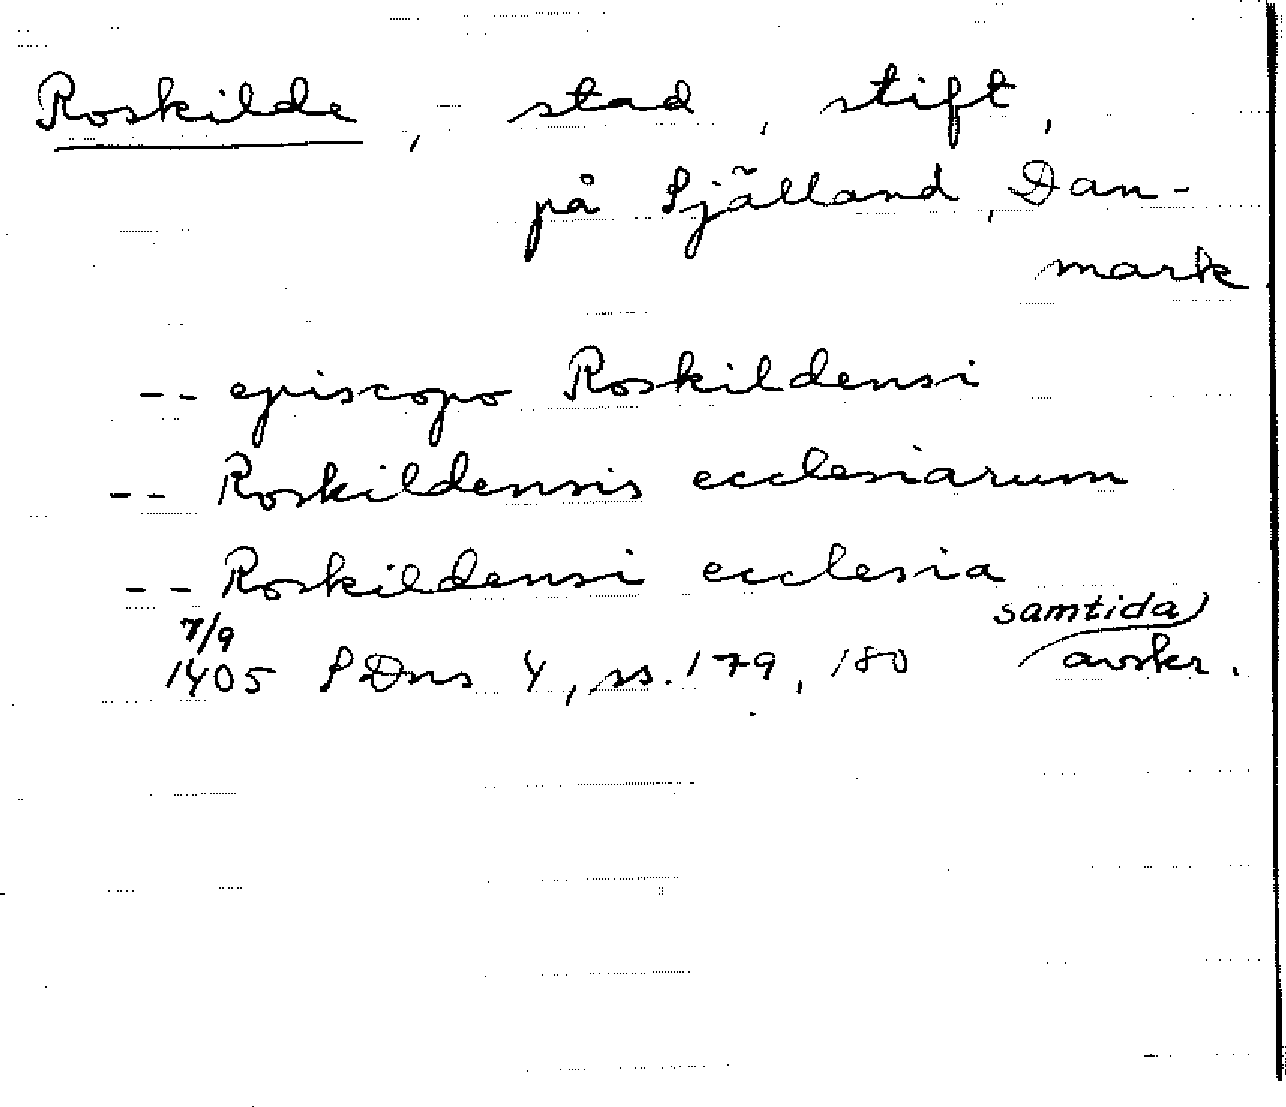 Roskilde, stad, stift,
på Själland, Dan-
mark.
-- episcopo Roskildensi
-- Roskildensis ecclesiarum
-- Roskildensi ecclesia
7/9 samtida
1405 SDns 4, ss. 179, 180 avskr.